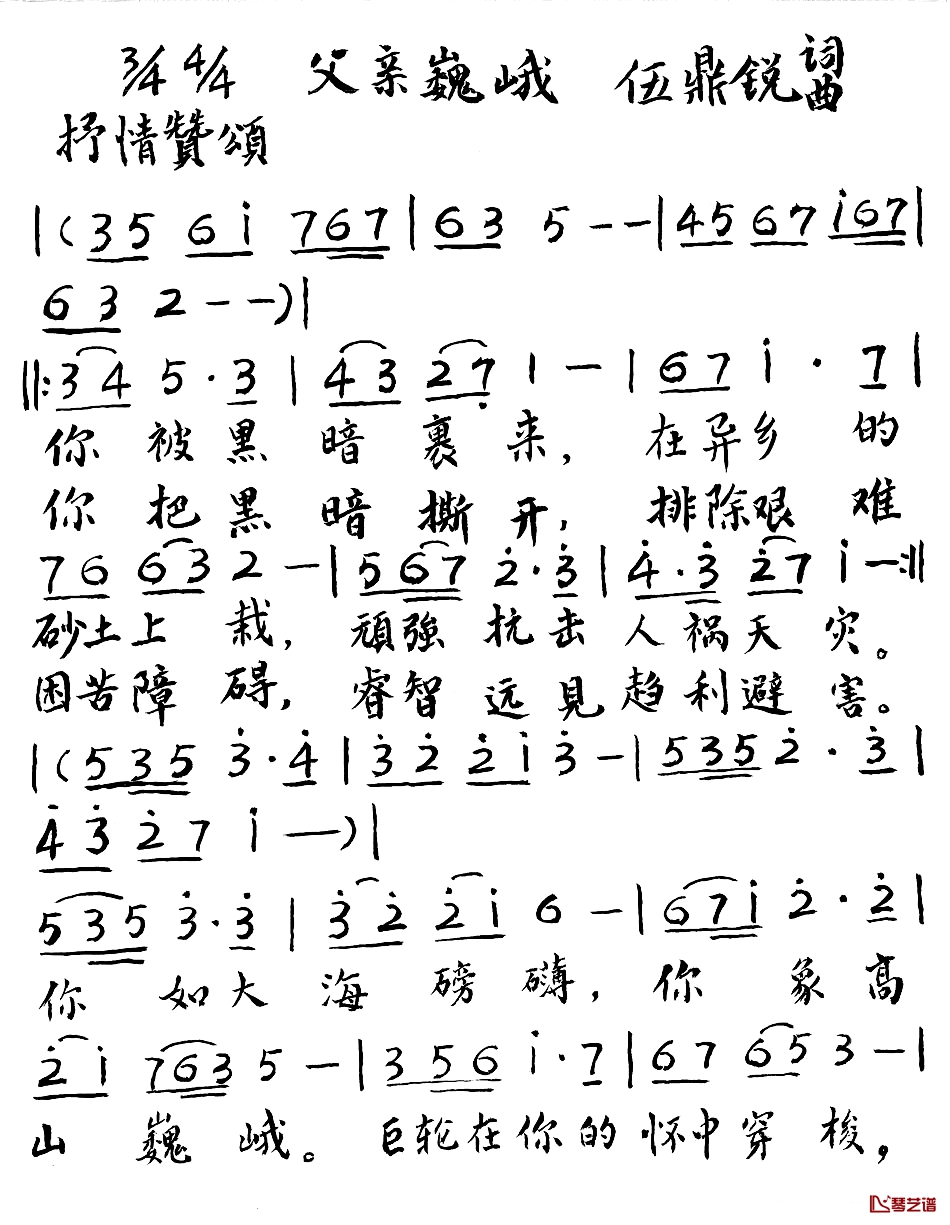 3/4 4/4 父亲巍峨 伍鼎锐 词曲
抒情贊頌
|(35 6i 767|63 5--|45 67 i67|
63 2--)|
||:34 5·3|43 27̣ 1-|67 i·7|
你被黑暗裹来,在异乡的
你把黑暗撕开,排除艰难
76 63 2-|567 2̇·3̇|4̇·3̇ 2̇7 i-:||
砂土上栽,頑強抗击人祸天灾。
困苦障碍,睿智远見趋利避害。
|(535 3̇·4̇|3̇2̇ 2̇i 3̇-|535 2̇·3̇|
4̇3̇ 2̇7 i-)|
535 3̇·3̇|3̇2̇ 2̇i 6-|67i 2̇·2̇|
你如大海磅礴,你象高
2̇i 763 5-|356 i·7|67 65 3-|
山巍峨。巨轮在你的怀中穿梭,
琴艺谱